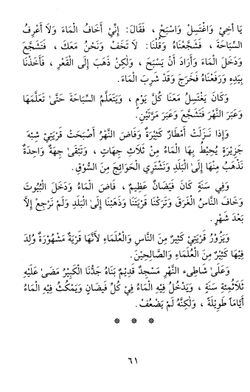 يَا أَخِيْ وَاغْتَسِلْ وَاسْبَحْ ، فَقَالَ: إِنِّيْ أَخَافُ الْمَاءَ وَلَا أَعْرِفُ
السِّبَاحَةَ ، فَشَجَّعْنَاهُ وَقُلْنَا: لَا تَخَفْ وَنَحْنُ مَعَكَ ، فَتَشَجَّعَ
وَدَخَلَ الْمَاءَ وَأَرَادَ أَنْ يَسْبَحَ ، وَلٰكِنْ ذَهَبَ إِلَى الْقَعْرِ ، فَأَخَذْنَا
بِيَدِهِ وَرَفَعْنَاهُ فَخَرَجَ وَقَدْ شَرِبَ الْمَاءَ.
وَكَانَ يَغْتَسِلُ مَعَنَا كُلَّ يَوْمٍ ، وَيَتَعَلَّمُ السِّبَاحَةَ حَتَّىٰ تَعَلَّمَهَا
وَعَبَرَ النَّهْرَ فَتَشَجَّعَ وَعَبَرَ مَرَّتَيْنِ.
وَإِذَا نَزَلَتْ أَمْطَارٌ كَثِيْرَةٌ وَفَاضَ النَّهْرُ أَصْبَحَتْ قَرْيَتِيْ شِبْهَ
جَزِيْرَةٍ يُحِيْطُ بِهَا الْمَاءُ مِنْ ثَلَاثِ جِهَاتٍ ، وَتَبْقَىٰ جِهَةٌ وَاحِدَةٌ
نَذْهَبُ مِنْهَا إِلَى الْبَلَدِ وَنَشْتَرِي الْحَوَائِجَ مِنَ السُّوْقِ.
وَفِيْ سَنَةٍ كَانَ فَيَضَانٌ عَظِيْمٌ ، فَاضَ الْمَاءُ وَدَخَلَ الْبُيُوْتَ
وَخَافَ النَّاسُ الْغَرَقَ وَتَرَكْنَا قَرْيَتَنَا وَذَهَبْنَا إِلَى الْبَلَدِ وَلَمْ نَرْجِعْ إِلَّا
بَعْدَ شَهْرٍ.
وَيَزُوْرُ قَرْيَتِيْ كَثِيْرٌ مِنَ النَّاسِ وَالْعُلَمَاءِ لِأَنَّهَا قَرْيَةٌ مَشْهُوْرَةٌ وُلِدَ
فِيْهَا كَثِيْرٌ مِنَ الْعُلَمَاءِ وَالصَّالِحِيْنَ.
وَعَلَىٰ شَاطِىءِ النَّهْرِ مَسْجِدٌ قَدِيْمٌ بَنَاهُ جَدُّنَا الْكَبِيْرُ مَضَىٰ عَلَيْهِ
ثَلَاثُمِائَةِ سَنَةٍ ، وَيَدْخُلُ فِيْهِ الْمَاءُ فِيْ كُلِّ فَيَضَانٍ وَيَمْكُثُ فِيْهِ الْمَاءُ
أَيَّامًا طَوِيْلَةً ، وَلٰكِنَّهُ لَمْ يَضْعُفْ.
* * *
٦١